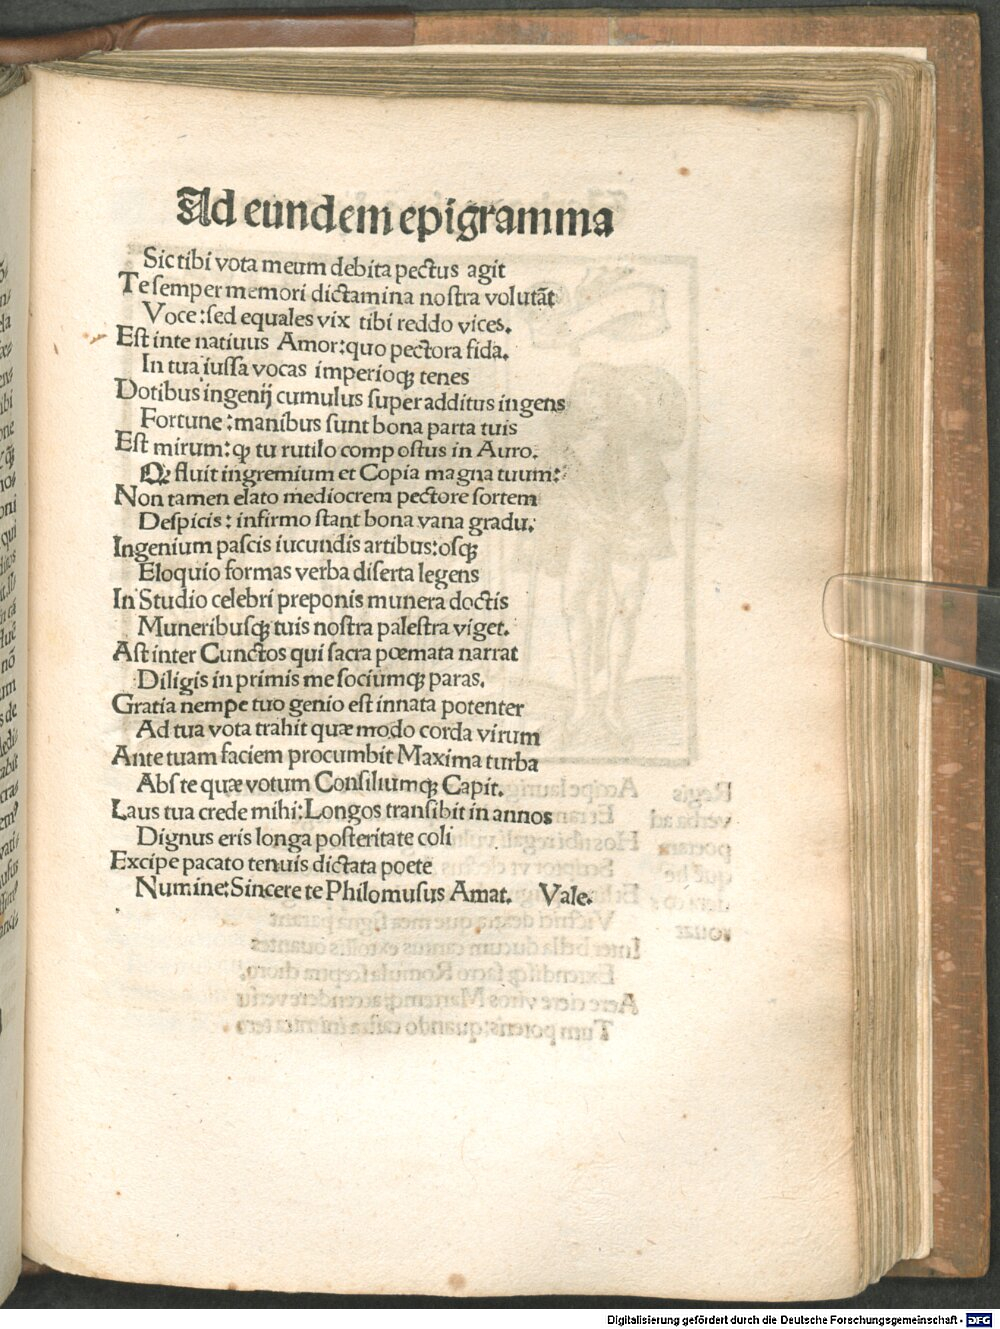 Ad eundem epigramma
Sic tibi vota meum debita pectus agit
Te semper memori dictamina nostra volutãt
Voce: sed equales vix tibi reddo vices.
Est inte natiuus Amor: quo pectora fida.
In tua iussa vocas imperioqꝫ tenes
Dotibus ingenij cumulus super additus ingens
Fortune: manibus sunt bona parta tuis
Est mirum: ꝙ tu rutilo compostus in Auro.
fluit ingremium et Copia magna tuum:
Non tamen elato mediocrem pectore sortem
Despicis: infirmo stant bona vana gradu.
Ingenium pascis iucundis artibus: osqꝫ
Eloquio formas verba diserta legens
In Studio celebri preponis munera doctis
Muneribusqꝫ tuis nostra palestra viget.
Ast inter Cunctos qui sacra poemata narrat
Diligis in primis me sociumqꝫ paras.
Gratia nempe tuo genio est innata potenter
Ad tua vota trahit quæ modo corda virum
Ante tuam faciem procumbit Maxima turba
Abs te quæ votum Consiliumqꝫ Capit.
Laus tua crede mihi: Longos transibit in annos
Dignus eris longa posteritate coli
Excipe pacato tenuis dictata poete
Numine: Sincere te Philomusus Amat. Vale.
Digitalisierung gefördert durch die Deutsche Forschungsgemeinschaft - DFG